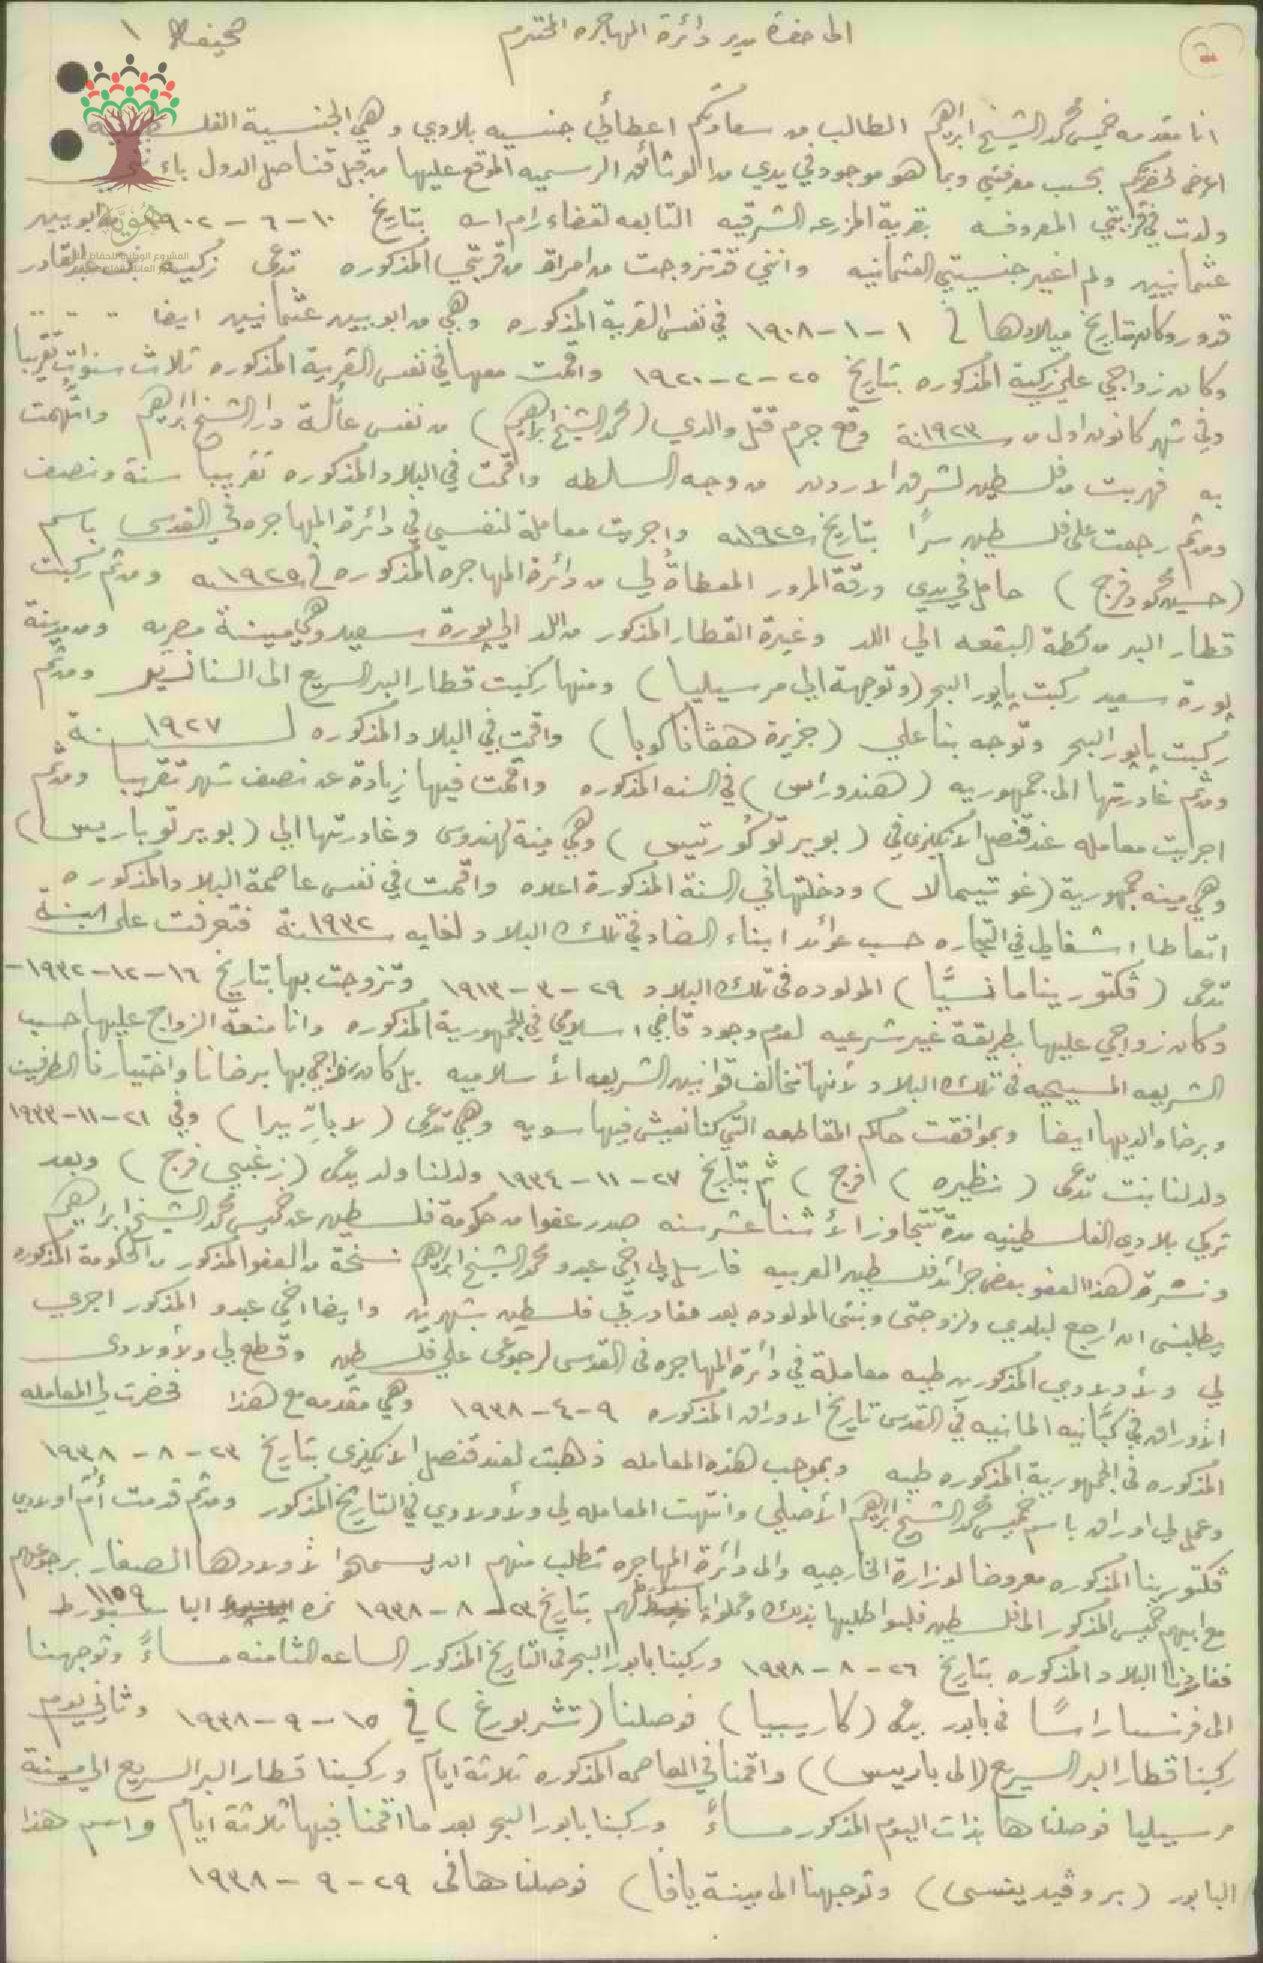 الى حضرة مدير دائرة المهاجره المحترم
صحيفة ١
انا مقدمه خميس محمد الشيخ ابراهيم الطالب من سعادتكم اعطائي جنسيه بلادي وهي الجنسية
اعرض لحضرتكم بحسب معرفتي وبما هو موجود في يدي من الوثائق الرسميه الموقع عليها من قبل قناصل الدول
ولدت في قريتي المعروفه بقرية المزرعه الشرقيه التابعه لقضاء رام الله بتاريخ ١٠ - ٦ - ١٩٠٢ من ابويين
عثمانيين ولم اغير جنسيتي العثمانيه وانني قد تزوجت من امراة من قريتي المذكوره تدعى زكيه عبدالقادر
قدوره وكان تاريخ ميلادها في ١ - ١ - ١٩٠٨ في نفس القرية المذكوره وهي من ابويين عثمانيين ايضا
وكان زواجي على زكية المذكوره بتاريخ ٢٥ - ٢ - ١٩٢٠ واقمت معها في نفس القرية المذكوره ثلاث سنوات تقريبا
وفي شهر كانون اول من سنة ١٩٢٣ وقع جرم قتل والدي (محمد الشيخ ابراهيم) من نفس عائلة دار الشيخ ابراهيم واتهمت
به فهربت من فلسطين لشرق الاردن من وجه السلطه واقمت في البلاد المذكوره تقريبا سنة ونصف
ومن ثم رجعت على فلسطين سرًا بتاريخ سنة ١٩٢٥ واجريت معاملة لنفسي في دائرة المهاجره في القدس باسم
(حسين محمود فرج) حامل في يدي ورقة المرور المعطاة لي من دائرة المهاجره المذكوره في سنة ١٩٢٥ ومن ثم ركبت
قطار البر من محطة البقعه الي اللد وغيرة القطار المذكور من اللد الي پورة سعيد وهي مينة مصريه ومن مدينة
پورة سعيد ركبت پاپور البحر (وتوجهة الي مرسيليا) ومنها ركبت قطار البر السريع الى السنا ومن ثم
ركبت پاپور البحر وتوجه بنا على (جزيرة هڤانا كوبا) واقمت في البلاد المذكوره لسنة ١٩٢٧
ومن ثم غادرتها الى جمهوريه (هندوراس) في السنه المذكوره واقمت فيها زيادة عن نصف شهر تقريبا ومن ثم
اجرايت معامله عند قنصل الانكليزي في (بويرتو كورتيس) وهي مينة لهندوس وغادرتها الي (بويرتو باريس)
وهي مينه جمهورية (غوتيمالا) ودخلتها في السنة المذكورة اعلاه واقمت في نفس عاصمة البلاد المذكوره
اتعاطا اشغالي في التجاره حسب عوائد ابناء الضاد في تلك البلاد لغايه سنة ١٩٣٢ فتعرفت على ابنة
تدعى (ڤكتورينا مانسيَّا) المولوده في تلك البلاد ٢٩ - ٣ - ١٩١٣ وتزوجت بها بتاريخ ١٦ - ١٢ - ١٩٣٢ -
وكان زواجي عليها بطريقة غير شرعيه لعدم وجود قاضي اسلامي في الجمهورية المذكوره وانا منعة الزواج عليها حسب
الشريعه المسيحيه في تلك البلاد لأنها تخالف قوانين الشريعه الأسلاميه بل كان زواجي بها برضانا واختيارنا الطرفين
وبرضا والديها ايضا وبموافقت حاكم المقاطعه التي كنا نعيش فيها سويه وهي تدعى (لا بارّبيرا) وفي ٢١ - ١١ - ١٩٣٣
ولد لنا بنت تدعى (نظيره) (فرج) ثم بتاريخ ٢٧ - ١١ - ١٩٣٤ ولد لنا ولد يدعى (زغبي فرج) وبعد
تركي بلادي الفلسطينيه مدة تتجاوز الأثنا عشر سنه صدر عفوا من حكومة فلسطين عن خميس محمد الشيخ ابراهيم
ونشرة هذا العفو بعض جرائد فلسطين العربيه فارسل لي اخي عبدو محمد الشيخ ابراهيم نسخة من العفو المذكور من الحكومة المذكوره
يطلبني ان ارجع لبلدي ولزوجتى وبنتى المولوده بعد مغادرتي فلسطين بشهرين وايضا اخي عبدو المذكور اجرى
لي ولأولادي المذكورين طيه معاملة في دائرة المهاجره في القدس لرجوعي علي فلسطين وقطع لي ولأولادى
الأوراق في كبَّانيه المانيه في القدس تاريخ الاوراق المذكوره ٩ - ٤ - ١٩٣٨ وهي مقدمه مع هذا فحضرت لي المعامله
المذكوره في الجمهورية المذكوره طيه وبموجب هذه المعامله ذهبت لعند قنصل الانكليزى بتاريخ ٢٣ - ٨ - ١٩٣٨
وعمل لي اوراق باسم خميس محمد الشيخ ابراهيم الأصلي وانتهت المعامله لي ولأولادي في التاريخ المذكور ومن ثم قدمت أم اولادي
ڤكتورينا المذكوره معروضا لوزارة الخارجيه والى دائرة المهاجره تطلب منهم ان يسمحوا لأولادها الصغار برجوعهم
مع ابيهم خميس المذكور الى فلسطين فلبوا طلبها بذلك وعملوا پاسبورط لهم بتاريخ ٢٣ - ٨ - ١٩٣٨ نمره الپاسبورط ١١٥٩
فغادرنا البلاد المذكوره بتاريخ ٢٦ - ٨ - ١٩٣٨ وركبنا بابور البحر في التاريخ المذكور الساعه الثامنه مساءً وتوجهنا
الى فرنسا راسًا في بابور يدعى (كاريبيا) فوصلنا (تشربورغ) في ١٥ - ٩ - ١٩٣٨ وثاني يوم
ركبنا قطار البر السريع (الى باريس) واقمنا في العاصمه المذكوره ثلاثة ايام وركبنا قطار البر السريع الي مينة
مرسيليا فوصلناها بذات اليوم المذكور مساءً وركبنا بابور البحر بعد ما اقمنا فيها ثلاثة ايام واسم هذا
البابور (بروڤيدينسى) وتوجهنا الى مينة يافا) فوصلناها في ٢٩ - ٩ - ١٩٣٨